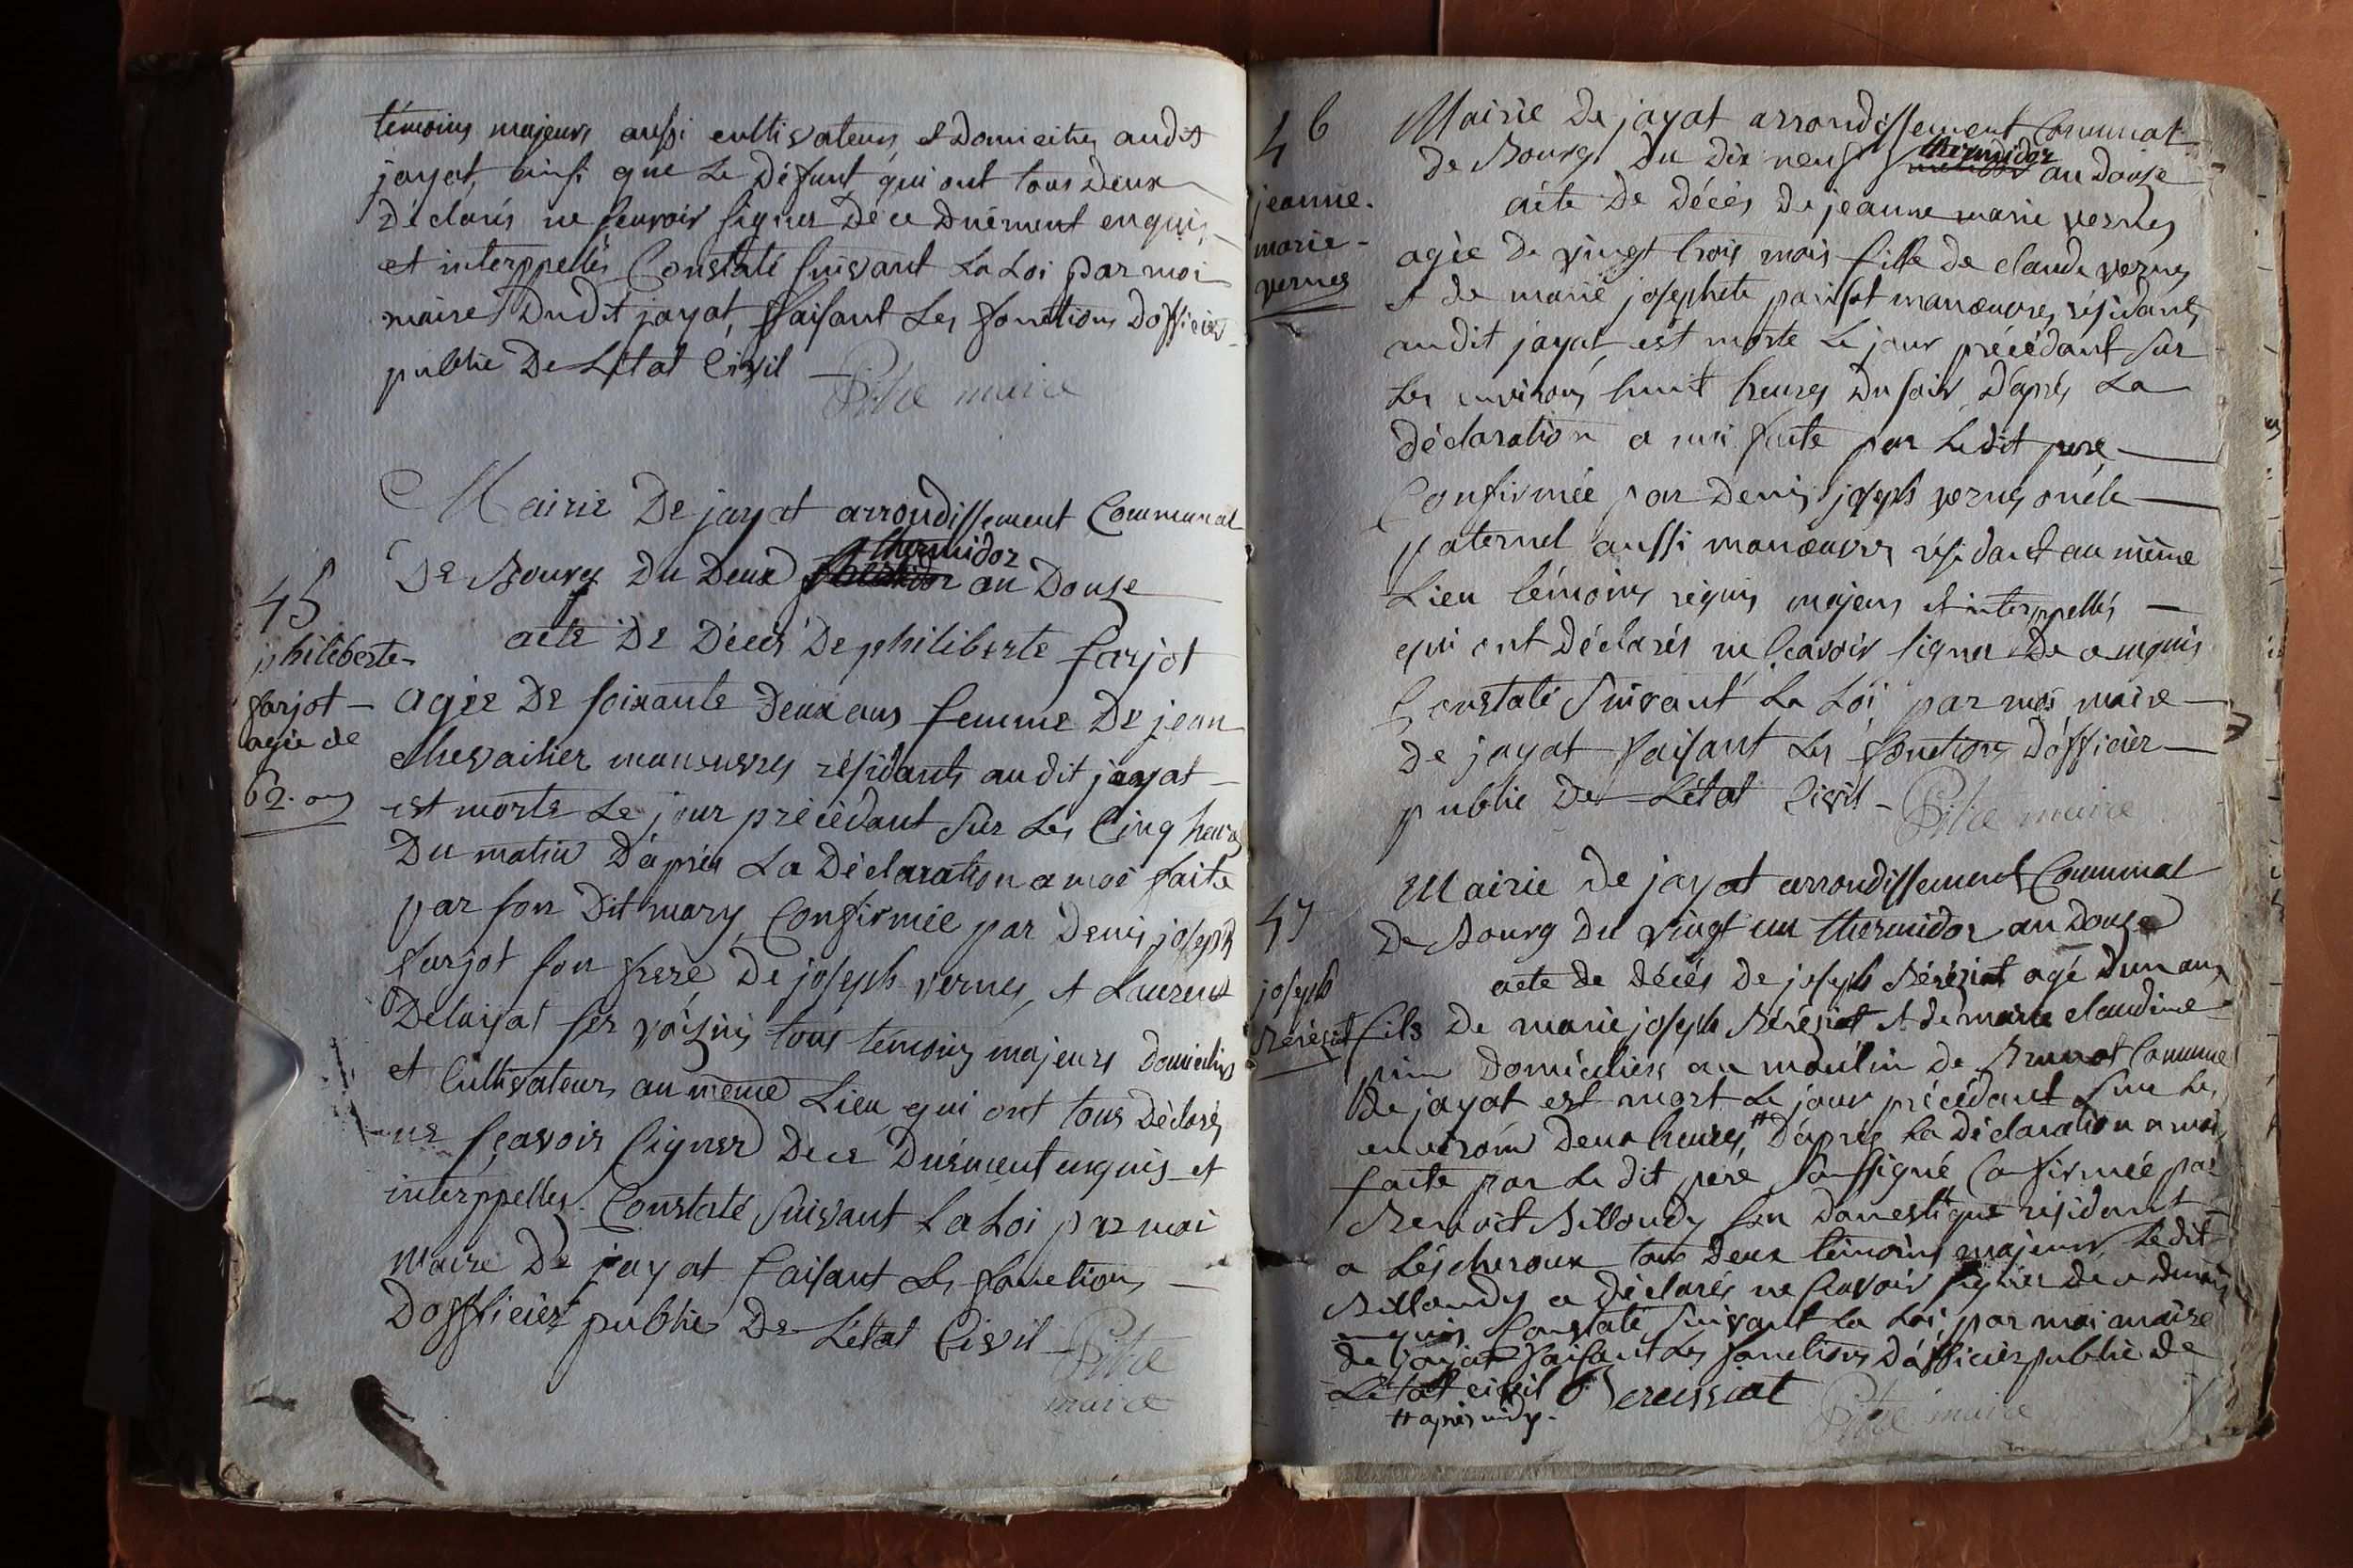 témoins majeurs aussi cultivateurs et domiciliés audit
jayat, ainsi que le défunt, qui ont tous deux
déclarés ne sçavoir signer de ce duement enquis
et interppellés Constaté suivant la Loi par moi
maire dudit jayat, faisant les fonctions d'officier
public de L'état Civil
Pitre maire
Mairie De jayat arrondissement Communal
De Bourg du deux thermidor an Douze
45
philiberte
farjot
agée de
62. ans
acte De Décès De philiberte farjot
agée De soixante deux ans femme De jean
chevailier manœuvres résidants audit jayat
est morte le jour précédant sur les Cinq heures
Du matin D'après La Déclaration a moi faite
par son Dit mary, Confirmée par Denis joseph
farjot son frere De joseph vernes, et Laurent
Delayat ses voisins tous témoins majeurs domiciliés
et Cultivateurs au même Lieu qui ont tous Déclarés
ne sçavoir signer De ce Duement enquis et
interppelles. Constaté suivant La Loi par moi
Maire De jayat faisant les fonctions
Dofficier public De L'état Civil
Pitre
maire
46
jeanne
marie
vernes
Mairie De jayat arrondissement Communal
de Bourg du dix neuf thermidor an douze
acte De décès De jeanne marie vernes
agée de vingt trois mois fille de claude vernes
et de marie josephete manœuvres résidants
audit jayat, est morte le jour précédant sur
les environs huit heures du soir, D'après La
déclaration a moi faite par ledit pere
Confirmée par Denis joseph vernes oncle
paternel aussi manœuvres résidant au même
Lieu témoins réquis majeurs et interppellés
qui ont déclarés ne sçavoir signer De ce enquis
Constaté suivant La Loi par moi maire
de jayat faisant les fonctions d'officier
public De L'état Civil
Pitre maire
47
joseph
Mairie de jayat arrondissement Communal
De Bourg du vingt un thermidor an douze
acte de décès de joseph Béréziat agé d'un an
fils De marie joseph Béréziat et de marie claudine
domiciliés au moulin de Commune
de jayat est mort le jour précédant sur les
environs deux heures, # d'après la déclaration a moi
faite par le dit pere soussigné Confirmée par
Benoit Billoudy son domestique résidant
a Léscheroux tous deux témoins majeurs, Ledit
Billoudy a déclarés ne sçavoir signer de ce duement
enquis Constaté suivant la Loi par moi maire
de jayat faisant les fonctions d'officier public de
L'état civil
# après midy.
Pitre maire